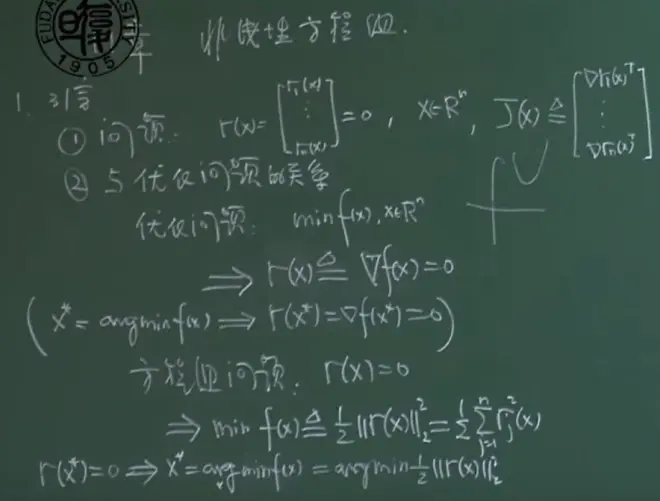 FUDAN UNIVERSITY 1905
章 非线性方程组.
1. 引言
① 问题: r(x)=[r₁(x) ⋮ rₙ(x)]=0, x∈Rⁿ, J(x)≜[∇r₁(x)ᵀ ⋮ ∇rₙ(x)ᵀ]
② 与优化问题的关系
优化问题: min f(x), x∈Rⁿ
⇒ r(x)≜∇f(x)=0
(x*=argmin f(x) ⇒ r(x*)=∇f(x*)=0)
方程组问题: r(x)=0
⇒ min f(x)≜½||r(x)||₂²=½∑ⱼ₌₁ⁿ rⱼ²(x)
r(x*)=0 ⇒ x*=argminₓ f(x)=argmin ½||r(x)||₂²